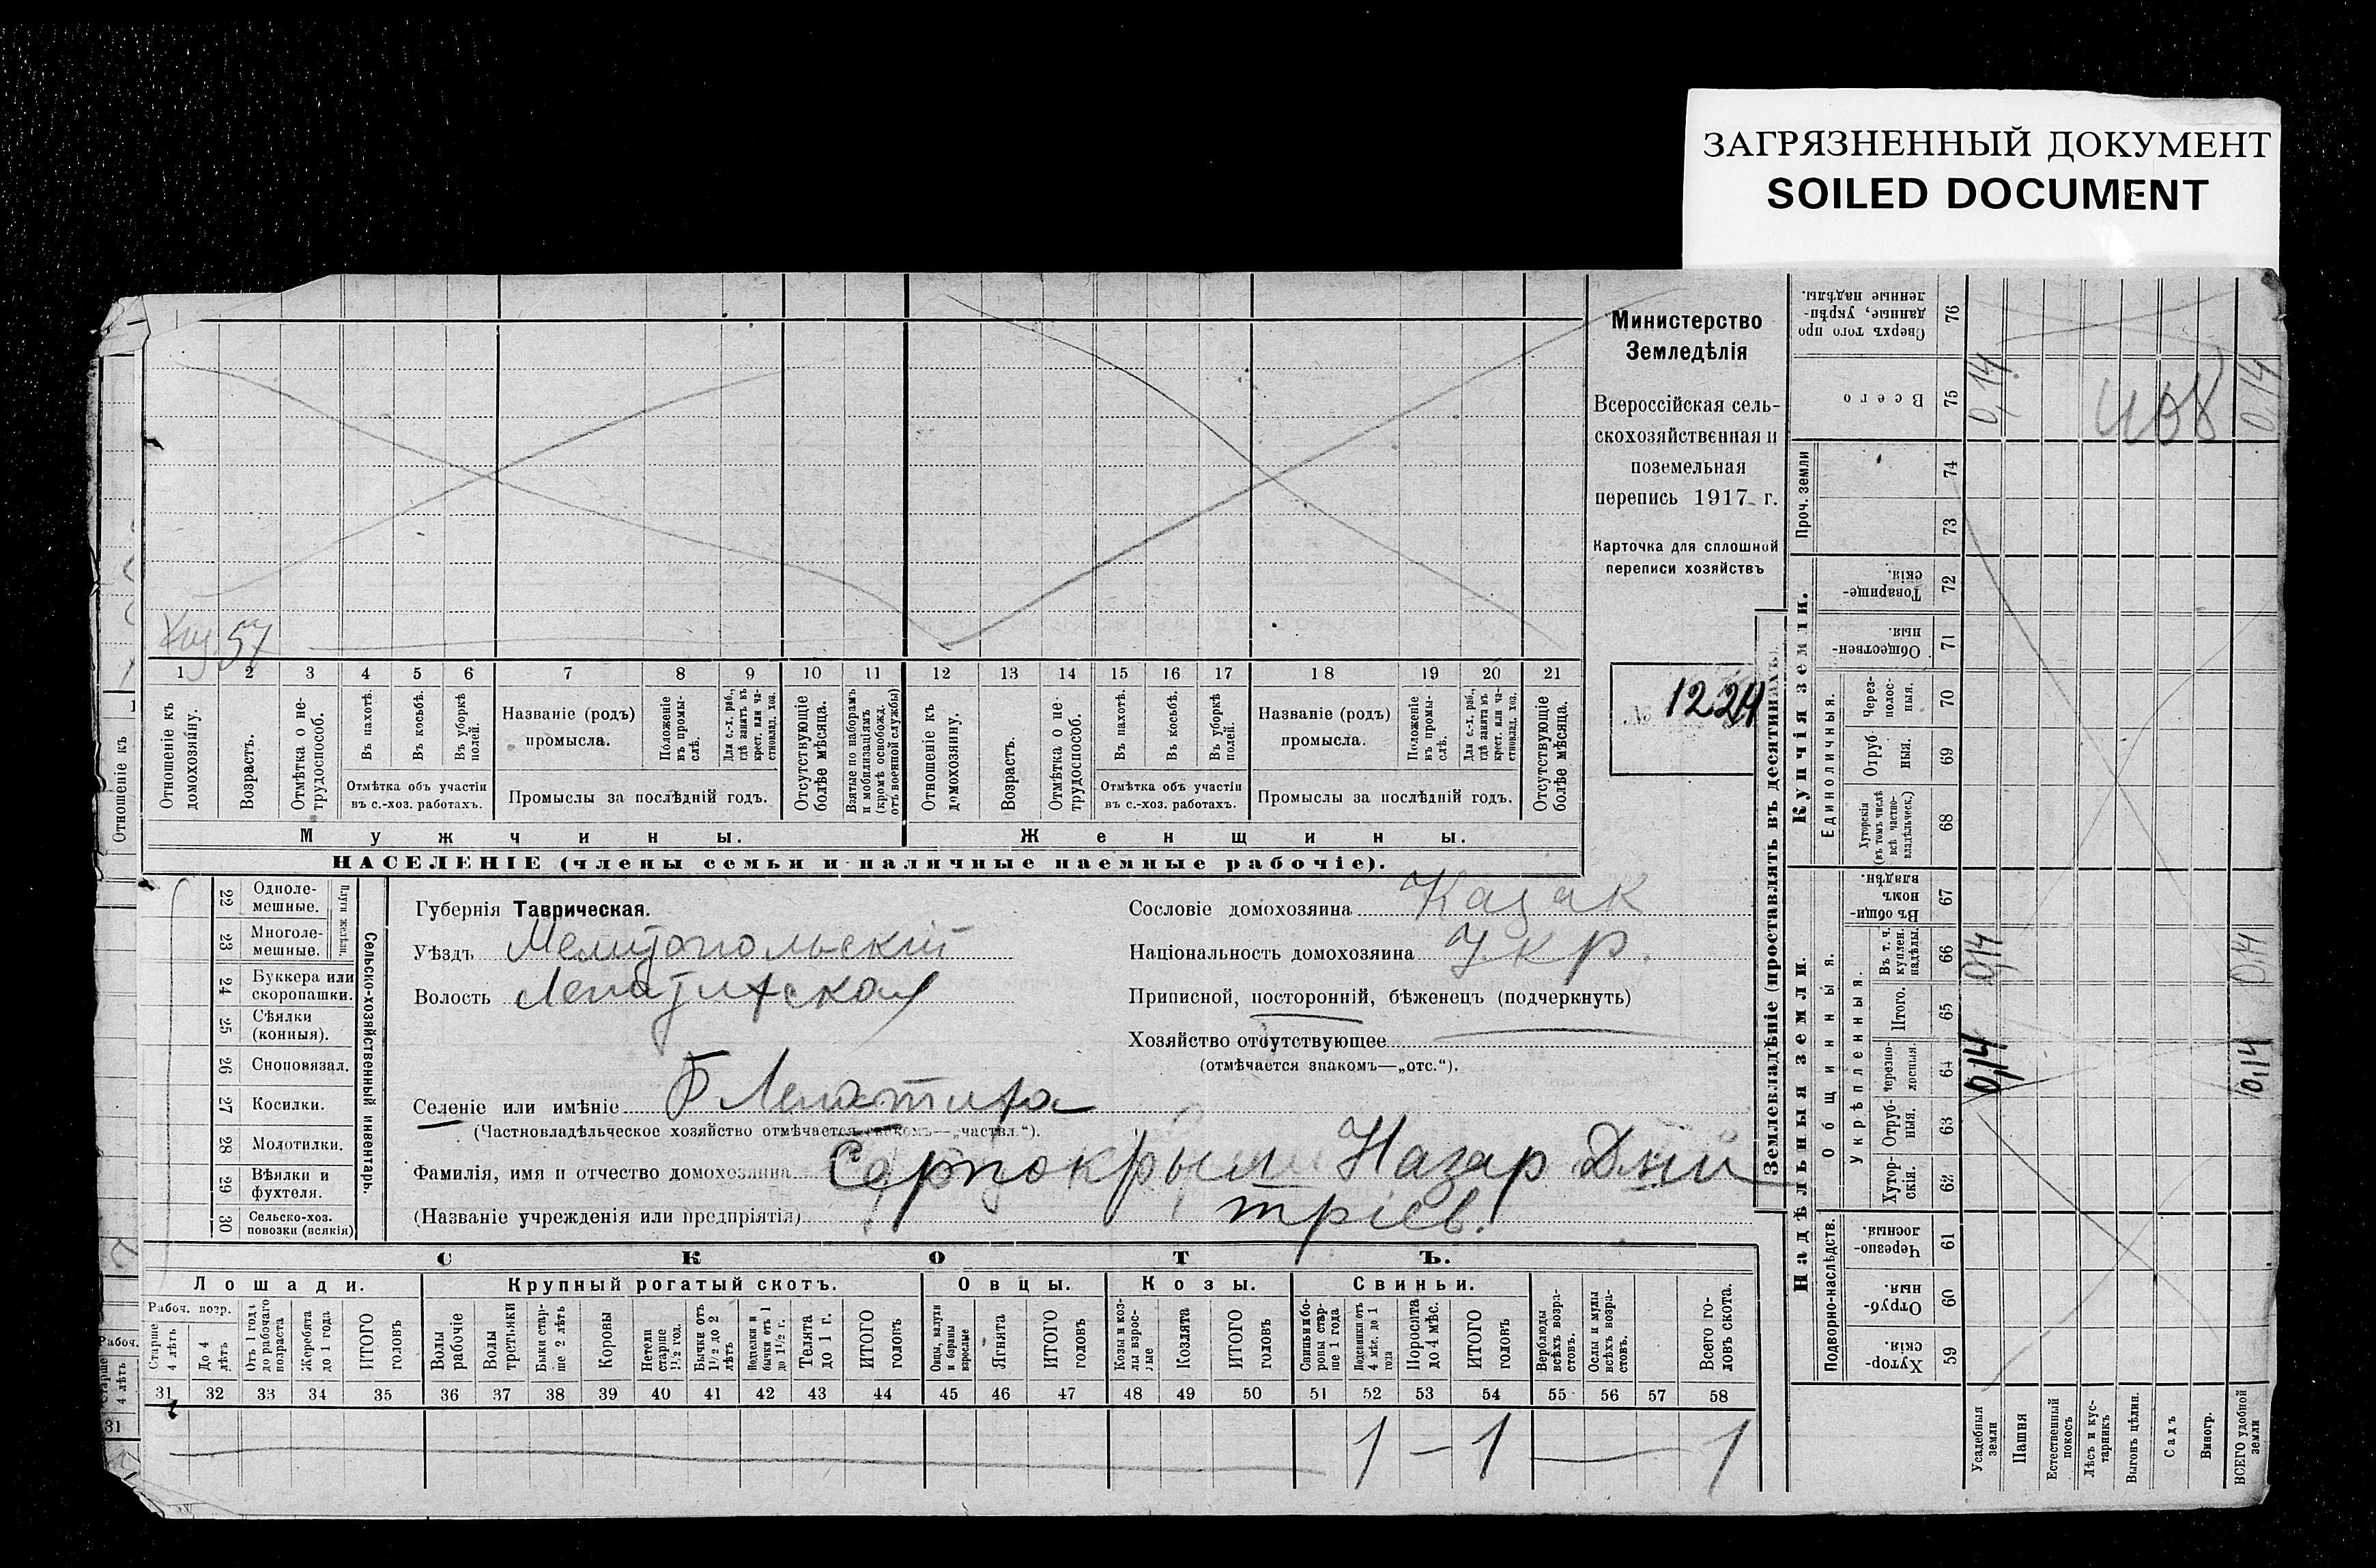 ЗАГРЯЗНЕННЫЙ ДОКУМЕНТ
SOILED DOCUMENT
Министерство
Земледѣлія
Всероссійская сель-
скохозяйственная и
поземельная
перепись 1917 г.
Карточка для сплошной
переписи хозяйствъ
№ 1224
57
1 2 3 4 5 6 7 8 9 10 11 12 13 14 15 16 17 18 19 20 21
Отношеніе къ домохозяину.
Возрастъ.
Отмѣтка о не-трудоспособ.
Въ пахотѣ.
Въ косьбѣ.
Въ уборкѣ полей.
Отмѣтка объ участіи
въ с.-хоз. работахъ.
Названіе (родъ)
промысла.
Положеніе въ промы-слѣ.
Промыслы за послѣдній годъ.
Отсутствующіе болѣе мѣсяца.
Взятые по наборамъ и мобилизаціямъ (кромѣ освобожд. отъ военной службы)
Отношеніе къ домохозяину.
Возрастъ.
Отмѣтка о не-трудоспособ.
Въ пахотѣ.
Въ косьбѣ.
Въ уборкѣ полей.
Отмѣтка объ участіи
въ с.-хоз. работахъ.
Названіе (родъ)
промысла.
Положеніе въ промы-слѣ.
Промыслы за послѣдній годъ.
Отсутствующіе болѣе мѣсяца.
Мужчины.
Женщины.
НАСЕЛЕНІЕ (члены семьи и наличные наемные рабочіе).
Сельско-хозяйственный инвентарь.
22 Одноле-мешные.
23 Многоле-мешные.
24 Буккера или скоропашки.
25 Сѣялки (конныя).
26 Сноповязал.
27 Косилки.
28 Молотилки.
29 Вѣялки и фухтеля.
30 Сельско-хоз. повозки (всякія)
Губернія Таврическая.
Уѣздъ Мелитопольскій
Волость Лепатихская
Селеніе или имѣніе Б Лепатиха
(Частновладѣльческое хозяйство отмѣчается знакомъ—„частвл.“).
Фамилія, имя и отчество домохозяина Сарпокрыл Назар Дми
(Названіе учрежденія или предпріятія) тріев.
Сословіе домохозяина Казак
Національность домохозяина Укр.
Приписной, посторонній, бѣженецъ (подчеркнуть)
Хозяйство отсутствующее
(отмѣчается знакомъ—„отс.“).
СКОТЪ.
Лошади. Крупный рогатый скотъ. Овцы. Козы. Свиньи.
Рабоч. возр.
Старше 4 лѣтъ
До 4 лѣтъ
Отъ 1 года до рабочаго возраста
Жеребята до 1 года
ИТОГО головъ
Волы рабочіе
Волы третьяки
Быки стар-ше 2 лѣтъ
Коровы
Нетели старше 1½ год.
Бычки отъ 1½ до 2 лѣтъ
Телята до 1 г.
ИТОГО головъ
Ягнята
ИТОГО головъ
Козы и коз-лы взрос-лые
Козлята
ИТОГО головъ
Поросята до 4 мѣс.
ИТОГО головъ
Верблюды всѣхъ возра-стовъ.
Ослы и мулы всѣхъ возра-стовъ.
Всего го-ловъ скота.
31 32 33 34 35 36 37 38 39 40 41 42 43 44 45 46 47 48 49 50 51 52 53 54 55 56 57 58
1 — 1 — 1
Землевладѣніе (проставлять въ десятинахъ).
Надѣльныя земли.
Купчія земли.
Проч. земли
Подворно-наслѣдств.
Общинныя.
Укрѣпленныя.
Единоличныя.
Хутор-скія. 59
Отруб-ныя 60
Черезпо-лосныя. 61
Хутор-скія. 62
Отруб-ныя. 63
Черезпо-лосныя. 64
Итого. 65
Въ т. ч. куплен. надѣлы. 66
Въ общин-номъ владѣн. 67
Хуторскія (въ томъ числѣ всѣ частно-владѣльческ.) 68
Отруб-ныя. 69
Через-полос-ныя. 70
Обществен-ныя. 71
Товарище-скія. 72
73
74
Всего 75
Сверхъ того про-данные, укрѣп-ленные надѣлы. 76
0,14 0,14
0,14 0,14
0,14 0,14
Усадебныя земли
Пашня
Естественный покосъ
Лѣсъ и кус-тарникъ
Выгонъ цѣлин.
Садъ
Виногр.
ВСЕГО удобной земли
Отношеніе къ
Рабоч.
Старше 4 лѣтъ
31